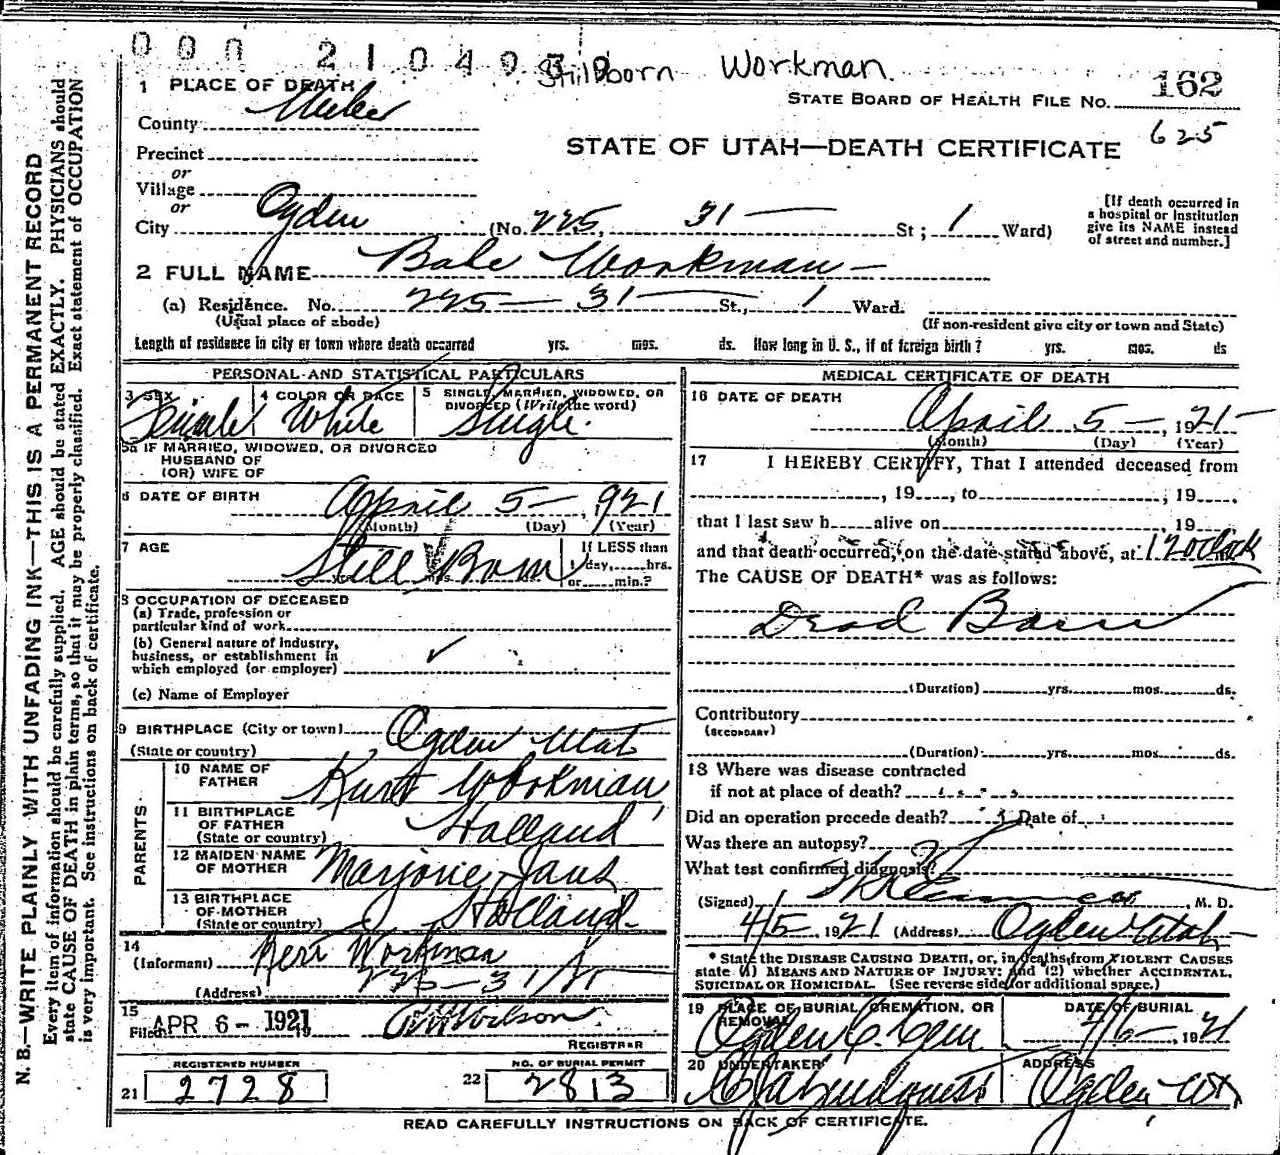 000 210493
Stillborn Workman
1 PLACE OF DEATH
STATE BOARD OF HEALTH FILE NO. 162
County Weber
625
STATE OF UTAH—DEATH CERTIFICATE
Precinct
or
Village
or
City Ogden (No. 225, 31 — St; 1 Ward)
[If death occurred in
a hospital or institution
give its NAME instead
of street and number.]
2 FULL NAME Babe Workman —
(a) Residence. No. 225 — 31 — St., 1 Ward.
(Usual place of abode)
(If non-resident give city or town and State)
Length of residence in city or town where death occurred yrs. mos. ds. How long in U. S., if of foreign birth? yrs. mos. ds
PERSONAL AND STATISTICAL PARTICULARS
3 SEX Female
4 COLOR OR RACE White
5 SINGLE, MARRIED, WIDOWED, OR
DIVORCED (Write the word)
Single.
5a IF MARRIED, WIDOWED, OR DIVORCED
HUSBAND OF
(OR) WIFE OF
6 DATE OF BIRTH April 5 — , 1921
(Month) (Day) (Year)
7 AGE Still Born
If LESS than
1 day,......hrs.
or......min.?
8 OCCUPATION OF DECEASED
(a) Trade, profession or
particular kind of work
(b) General nature of industry,
business, or establishment in
which employed (or employer)
(c) Name of Employer
9 BIRTHPLACE (City or town) Ogden Utah
(State or country)
PARENTS
10 NAME OF
FATHER Kurt Workman
11 BIRTHPLACE
OF FATHER
(State or country) Holland
12 MAIDEN NAME
OF MOTHER Marjorie Jans
13 BIRTHPLACE
OF MOTHER
(State or country) Holland
14
(Informant) Kert Workman
(Address) 225 — 31 St
15
Filed APR 6 - 1921 Wilson
REGISTRAR
REGISTERED NUMBER
21 2728
NO. OF BURIAL PERMIT
22 2813
MEDICAL CERTIFICATE OF DEATH
16 DATE OF DEATH
April 5 — , 1921 —
(Month) (Day) (Year)
17 I HEREBY CERTIFY, That I attended deceased from
, 19 , to , 19 ,
that I last saw h alive on , 19
and that death occurred, on the date stated above, at 12 oclock
The CAUSE OF DEATH* was as follows:
Dead Born
(Duration) yrs. mos. ds.
Contributory
(SECONDARY)
(Duration) yrs. mos. ds.
18 Where was disease contracted
if not at place of death?
Did an operation precede death? Date of
Was there an autopsy?
What test confirmed diagnosis?
(Signed) , M. D.
4/5 1921 (Address) Ogden Utah
* State the DISEASE CAUSING DEATH, or, in deaths from VIOLENT CAUSES
state (1) MEANS AND NATURE OF INJURY; and (2) whether ACCIDENTAL,
SUICIDAL OR HOMICIDAL. (See reverse side for additional space.)
19 PLACE OF BURIAL, CREMATION, OR
REMOVAL
Ogden C. Cem
DATE OF BURIAL
4/6 — , 1921
20 UNDERTAKER
Lindquist
ADDRESS
Ogden Ut
READ CAREFULLY INSTRUCTIONS ON BACK OF CERTIFICATE.
N. B.—WRITE PLAINLY WITH UNFADING INK—THIS IS A PERMANENT RECORD
Every item of information should be carefully supplied. AGE should be stated EXACTLY. PHYSICIANS should
state CAUSE OF DEATH in plain terms, so that it may be properly classified. Exact statement of OCCUPATION
is very important. See instructions on back of certificate.